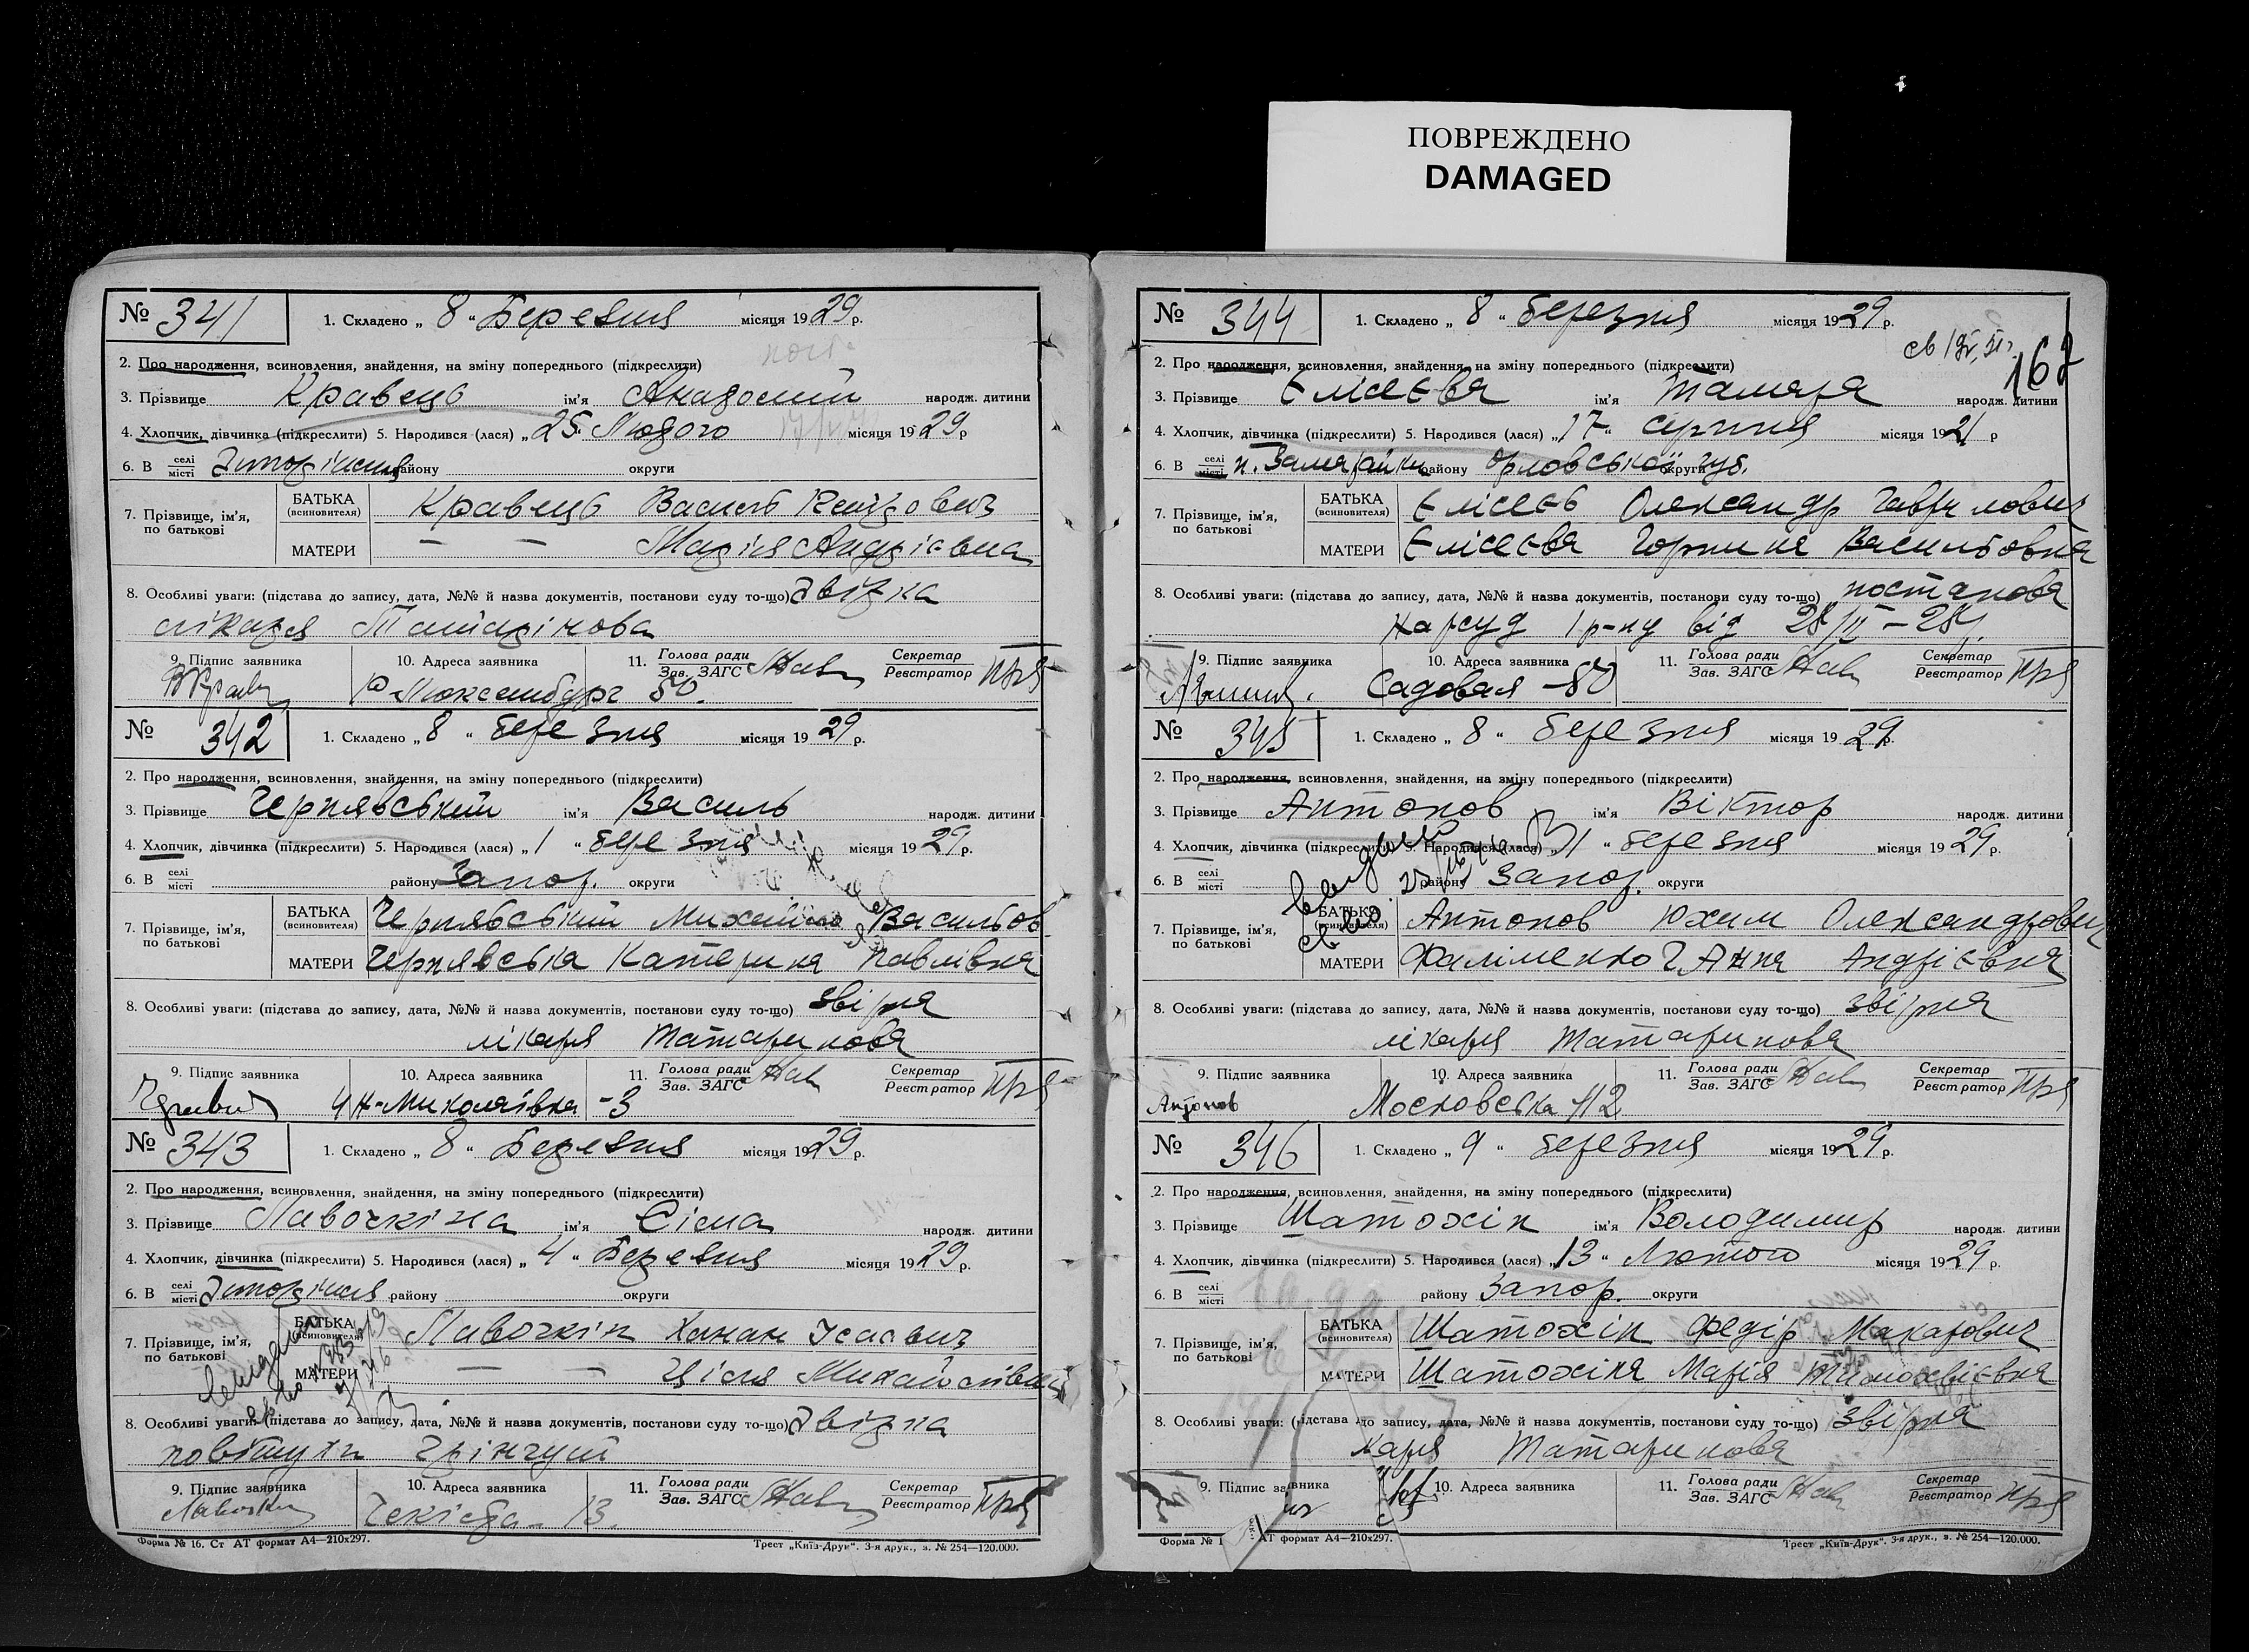 ПОВРЕЖДЕНО
DAMAGED
№ 341 1. Складено „ 8 “ Березня місяця 1929 р.
2. Про народження, всиновлення, знайдення, на зміну попереднього (підкреслити)
3. Прізвище Кравець ім'я Анатолій народж. дитини
4. Хлопчик, дівчинка (підкреслити) 5. Народився (лася) „ 25 “ Лютого місяця 1929 р
6. В селі місті Запоріжжя району округи
7. Прізвище, ім'я, по батькові БАТЬКА (всиновителя) Кравець Василь
МАТЕРИ — — Марія Андріевна
8. Особливі уваги: (підстава до запису, дата, №№ й назва документів, постанови суду то-що) Звідка
лікаря Татарінова
9. Підпис заявника 10. Адреса заявника 11. Голова ради Зав. ЗАГС Секретар Реєстратор
Р Люксембург 50.
№ 342 1. Складено „ 8 “ березня місяця 19 29 р.
2. Про народження, всиновлення, знайдення, на зміну попереднього (підкреслити)
3. Прізвище Чернявський ім'я Василь народж. дитини
4. Хлопчик, дівчинка (підкреслити) 5. Народився (лася) „ 1 “ березня місяця 1929 р.
6. В селі місті району Запор. округи
7. Прізвище, ім'я, по батькові БАТЬКА (всиновителя) Чернявський Михайло Васильов
МАТЕРИ Чернявська Катерина Павлівна
8. Особливі уваги: (підстава до запису, дата, №№ й назва документів, постанови суду то-що) звідка
лікаря Татаринова
9. Підпис заявника 10. Адреса заявника 11. Голова ради Зав. ЗАГС Секретар Реєстратор
Миколаївка - 3
№ 343 1. Складено „ 8 “ Березня місяця 1929 р.
2. Про народження, всиновлення, знайдення, на зміну попереднього (підкреслити)
3. Прізвище Лавочкіна ім'я Сіма народж. дитини
4. Хлопчик, дівчинка (підкреслити) 5. Народився (лася) „ 4 “ Березня місяця 1929 р.
6. В селі місті Запоріжжя району округи
7. Прізвище, ім'я, по батькові БАТЬКА (всиновителя) Лавочкін Ханан Ісаевич
МАТЕРИ — — Михайлівна
8. Особливі уваги: (підстава до запису, дата, №№ й назва документів, постанови суду то-що) Звідка
повітухи
9. Підпис заявника 10. Адреса заявника 11. Голова ради Зав. ЗАГС Секретар Реєстратор
Чекіста - 13.
Форма № 16. Ст АТ формат А4—210х297. Трест „Київ-Друк“. 3-я друк., з. № 254—120.000.
№ 344 1. Складено „ 8 “ березня місяця 1929 р.
162
2. Про народження, всиновлення, знайдення, на зміну попереднього (підкреслити)
3. Прізвище Єлісєєва ім'я Тамара народж. дитини
4. Хлопчик, дівчинка (підкреслити) 5. Народився (лася) „ 17 “ серпня місяця 1921 р
6. В селі місті району Орловської округи губ.
7. Прізвище, ім'я, по батькові БАТЬКА (всиновителя) Єлісєєв Олександр Гаврилович
МАТЕРИ Єлісєєва Горпина Васильовна
8. Особливі уваги: (підстава до запису, дата, №№ й назва документів, постанови суду то-що) постанова
Нарсуд 1 р-ну від 28/ІІ-28р.
9. Підпис заявника 10. Адреса заявника 11. Голова ради Зав. ЗАГС Секретар Реєстратор
Садовая - 80
№ 345 1. Складено „ 8 “ березня місяця 19 29 р.
2. Про народження, всиновлення, знайдення, на зміну попереднього (підкреслити)
3. Прізвище Антонов ім'я Віктор народж. дитини
4. Хлопчик, дівчинка (підкреслити) 5. Народився (лася) „ 1 “ березня місяця 19 29 р.
6. В селі місті району Запор. округи
7. Прізвище, ім'я, по батькові БАТЬКА (всиновителя) Антонов Юхим Олександрович
МАТЕРИ Филіменко Ганна Андрієвна
8. Особливі уваги: (підстава до запису, дата, №№ й назва документів, постанови суду то-що) звідка
лікаря Татаринова
9. Підпис заявника 10. Адреса заявника 11. Голова ради Зав. ЗАГС Секретар Реєстратор
Антонов Московська
№ 346 1. Складено „ 9 “ березня місяця 1929 р.
2. Про народження, всиновлення, знайдення, на зміну попереднього (підкреслити)
3. Прізвище Шатохін ім'я Володимир народж. дитини
4. Хлопчик, дівчинка (підкреслити) 5. Народився (лася) „ 13 “ Лютого місяця 1929 р.
6. В селі місті району Запор. округи
7. Прізвище, ім'я, по батькові БАТЬКА (всиновителя) Шатохін Федір Макарович
МАТЕРИ Шатохіна Марія Тимофієвна
8. Особливі уваги: (підстава до запису, дата, №№ й назва документів, постанови суду то-що) звідка
Татаринова
9. Підпис заявника 10. Адреса заявника 11. Голова ради Зав. ЗАГС Секретар Реєстратор
Форма № 1 АТ формат А4—210х297. Трест „Київ-Друк“. 3-я друк., з. № 254—120.000.